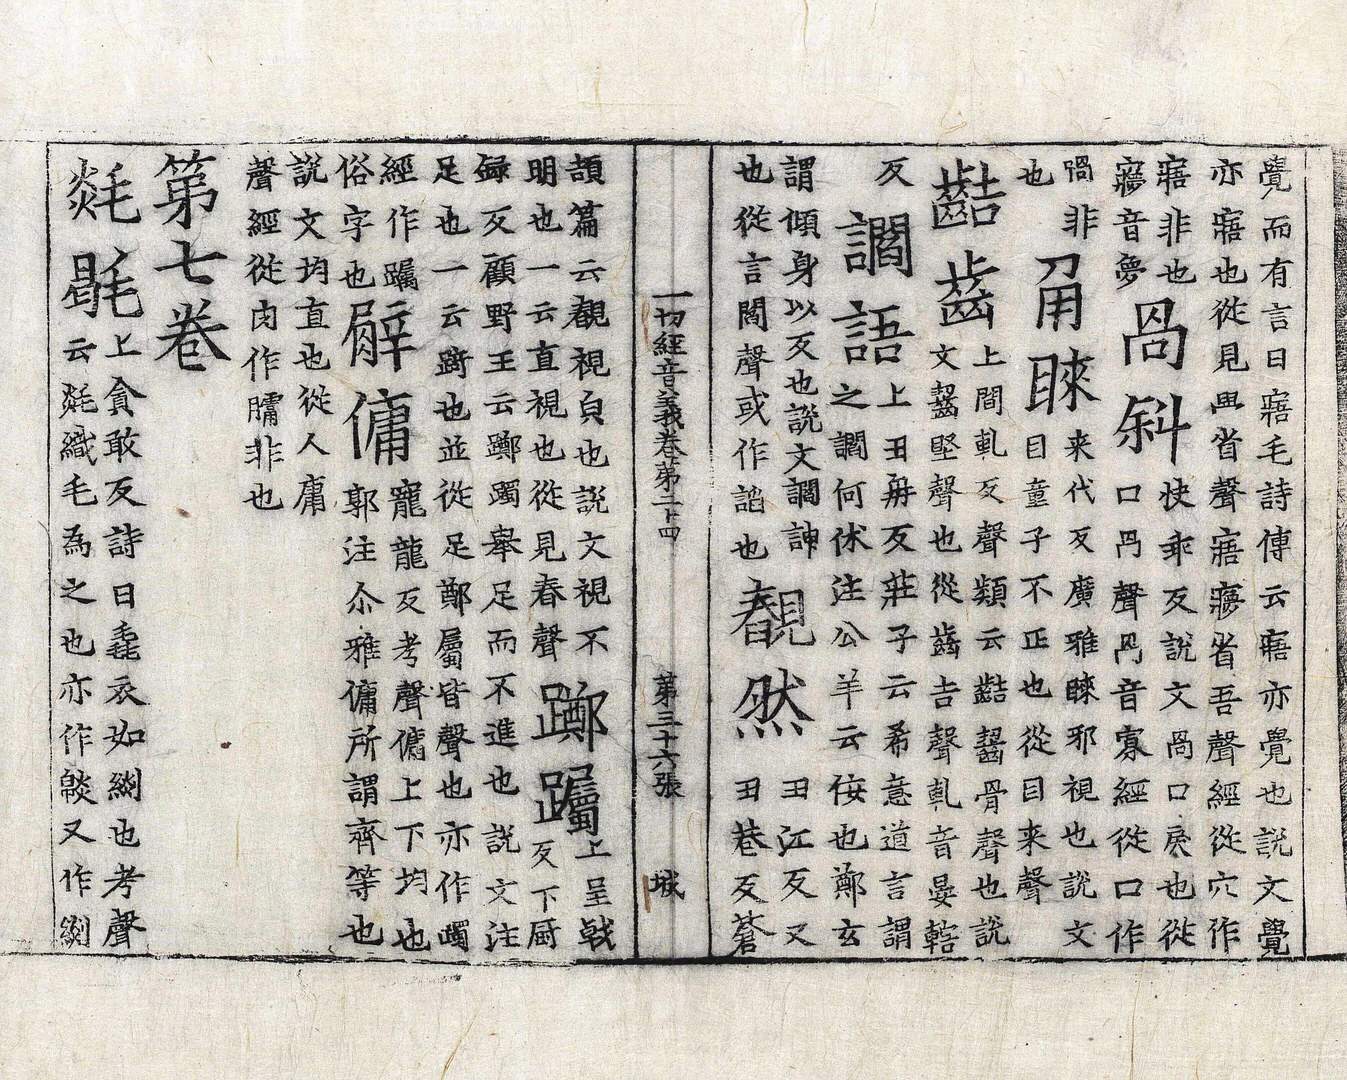 覺而有言曰寤毛詩傳云寤亦覺也說文覺
亦寤也從見𦥯省聲寤㝱省吾聲經從穴作
寤非也
㝱音夢
咼斜
快乖反說文咼口戾也從
口冎聲冎音寡經從口作
喎非
也
角睞
来代反廣雅睞邪視也說文
目童子不正也從目来聲
齰齒
上間軋反聲類云齰齧骨聲也說
文齧堅聲也從齒吉聲軋音晏轄
反
讇語
上丑冉反莊子云希意道言謂
之讇何休注公羊云佞也鄭玄
謂傾身以反也說文讇諛
也從言閻聲或作諂也
覩然
丑江反又
丑巷反蒼
一切經音義卷第二十四
第三十六張
城
頡篇云覩視皃也說文視不
明也一云直視也從見舂聲
躑躅
上呈戟
反下厨
録反顧野王云躑躅舉足而不進也說文注
足也一云蹢也並從足鄭屬皆聲也亦作躅
經作躅
俗字也
𦡳傭
寵龍反考聲傭上下均也
郭注尒雅傭所謂齊等也
說文均直也從人庸
聲經從肉作𦡳非也
第七卷
毯㲪
上貪敢反詩曰毳衣如緂也考聲
云毯織毛為之也亦作㲜又作緂